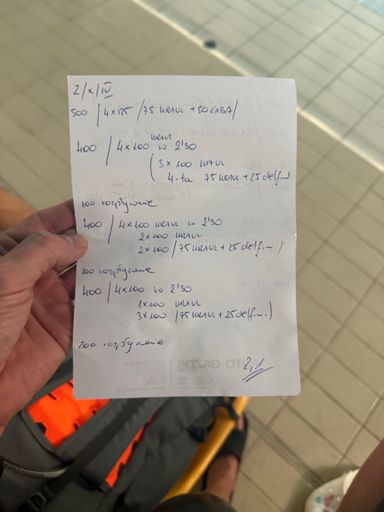 2/X/IV
500 / 4x125 /75 kraul + 50 żaba/
kraul
400 / 4x100 w 2'30
( 3x100 kraul
4-ta 75 kraul + 25 delfin)
100 rozpływanie
400 / 4x100 kraul w 2'30
2x100 kraul
2x100 /75 kraul + 25 delfin)
100 rozpływanie
400 / 4x100 w 2'30
1x100 kraul
3x100 /75 kraul + 25 delfin)
200 rozpływanie
2,1